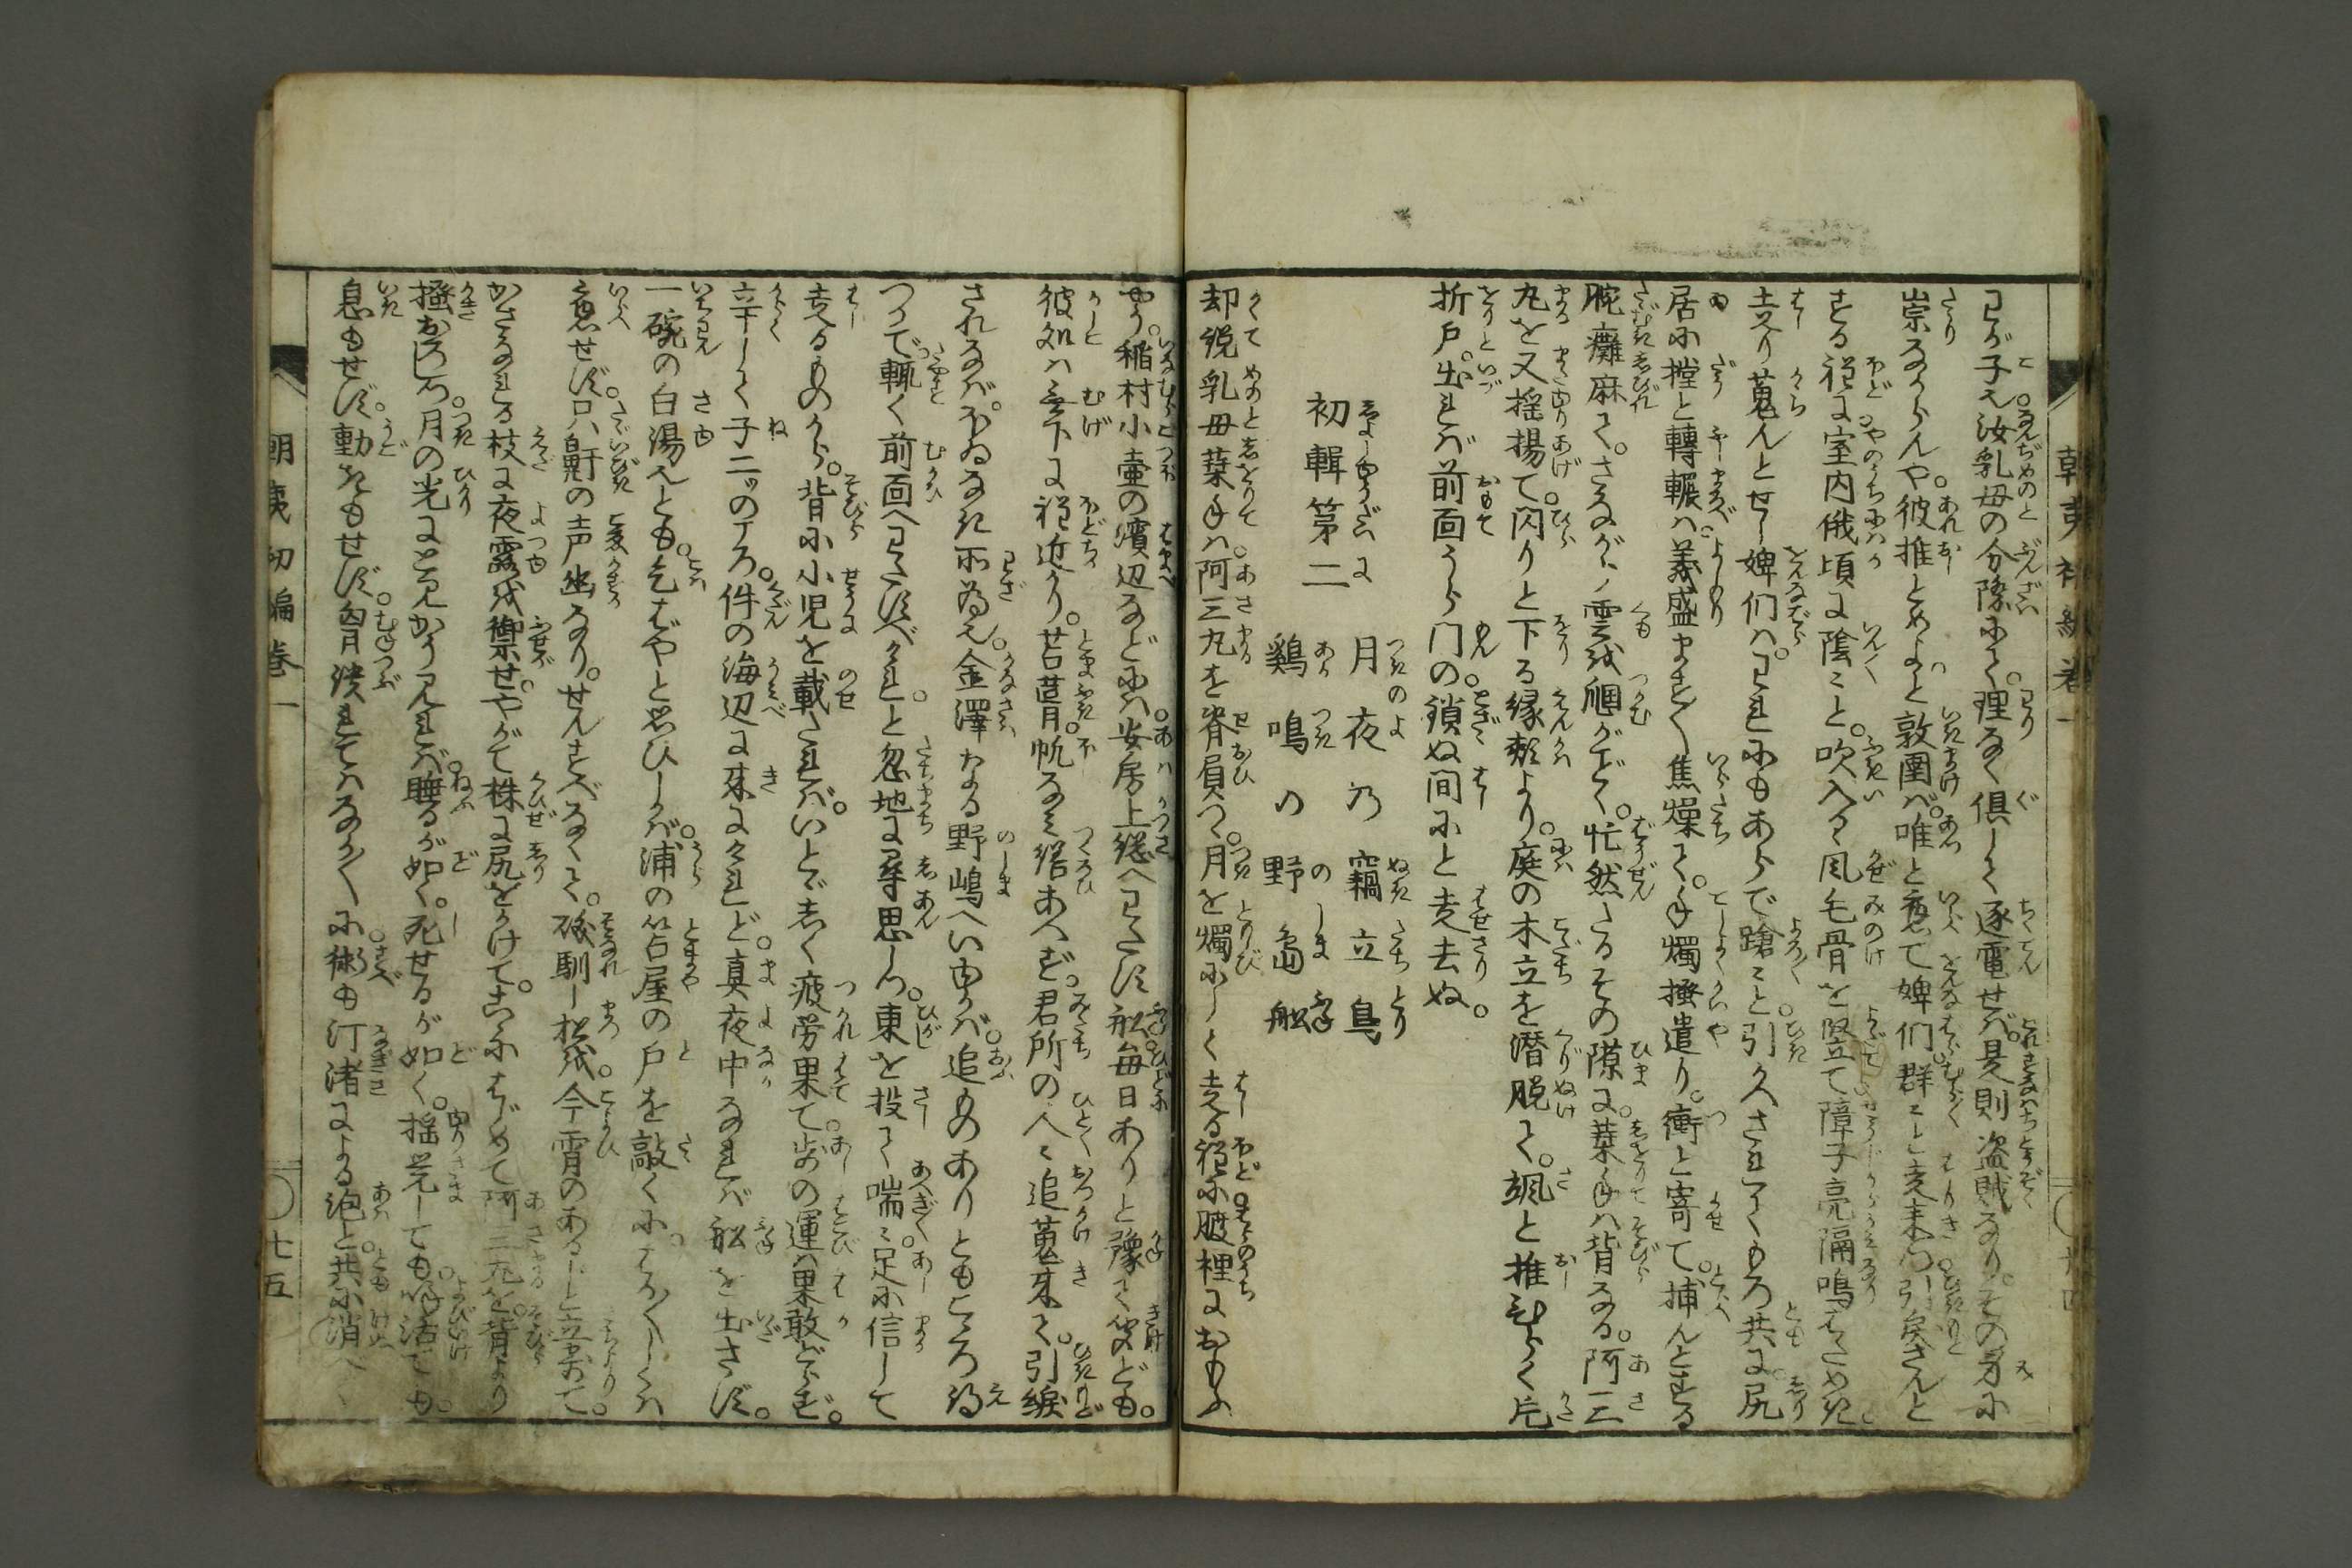 わが子を汝乳母の分際にて。理なく倶して逐電せば。是則盗賊なり。その身に
祟なからんや。彼推とめよと敦圉ば。唯と応て婢們群々と走来つ。引戻さんと
する程に室内俄頃に陰々と。吹入るゝ風毛骨を竪て障子亮隔鳴はためき
走り蒐んとせし婢們は。われにもあらで蹌々と。引かへされてもろ共に。尻
居に摚と轉輾ば。義盛ます〳〵焦燥て。手燭掻遣り。衝と寄て。捕んとする
腕癱麻て。さながら雲を𢮦がごとく。忙然たるその隙に。葉手は背なる。阿三
丸を又揺揚て。閃りと下る縁頬より。庭の木立を潜脱て。颯と推ひらく片
折戸。出れば前面うら門の。鎖ぬ間にと走去ぬ。
初輯第二
月夜乃竊立鳥
鷄鳴の野島舩
却説乳母葉手は阿三丸を脊屓つゝ。月を燭にして走る程に肚裡におもふ
やう。稲村小壷の濱辺などには。安房上総へわたす舩。毎日ありと豫て聞ども。
彼処は無下に程近かり。苫葺。帆なき繕あへず。君所の人々追蒐来て。引綟
されなば。ほゐなき所為也。金澤なる野嶋へいゆかば。追ものありともこゝろ得
つゝで輙く前面へわたすべけれ。と忽地に尋思しつ。東を投て喘々。足に信して
走るものから。背に小児を載たれば。いとゞしく疲労果て。歩の運は果敢どらず。
辛じて子二ッのころ。件の海辺に来にけれど。真夜中なれば舩を出さず。
一碗の白湯也とも。乞ばやと思ひしかば。浦の笘屋の戸を敲くに。はか〴〵しくは
應せず。只鼾の声幽なり。せんすべなくて。磯馴し松を。今宵のあるじと立寄て。
かさなれる枝に夜露を禦せ。やがて株に尻をかけて。こゝにはじめて阿三丸を。背より
掻おろしつ。月の光にとみかう見れば。睡るが如く。死せるが如く。揺覚しても。喚活ても。
息もせず。動きもせず。胸潰れてはなか〳〵に。術も汀渚による泡と。共に消
朝夷初編巻一
七五